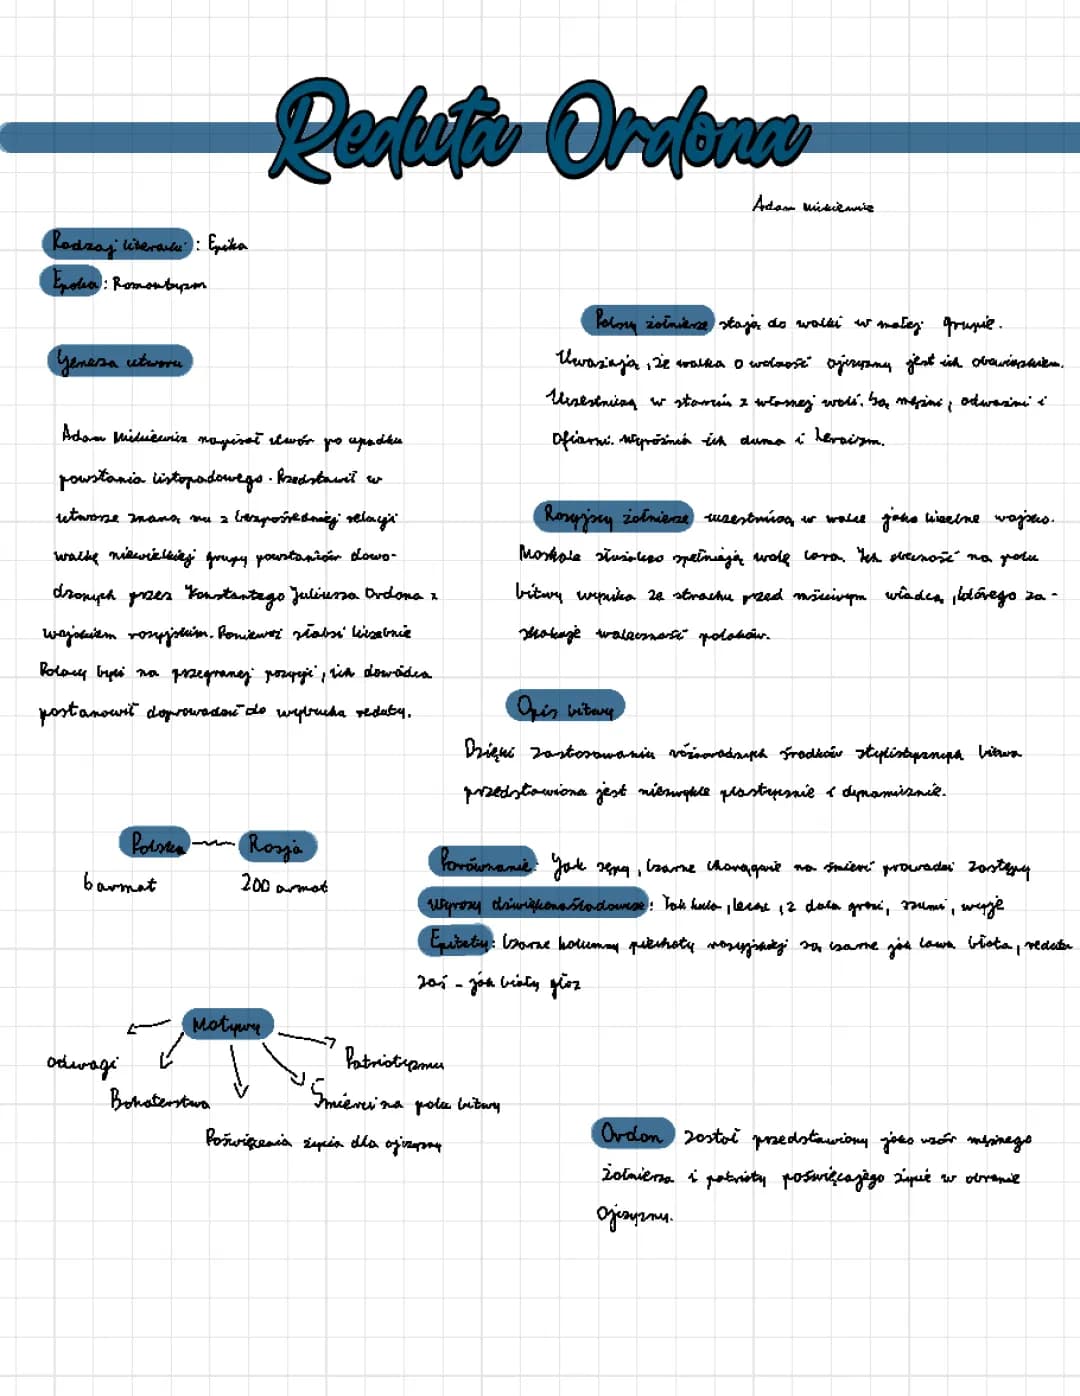 Reduta Ordona
Adam Mickiewicz
Rodzaj literacki : Epika
Epoka : Romantyzm
Geneza utworu
Adam Mickiewicz napisał utwór po upadku
powstania listopadowego. Przedstawił w
utworze znaną mu z bezpośredniej relacji
walkę niewielkiej grupy powstańców dowo-
dzonych przez Konstantego Juliusza Ordona z
wojskiem rosyjskim. Ponieważ słabsi liczebnie
Polacy byli na przegranej pozycji, ich dowódca
postanowił doprowadzić do wybucha reduty.
Polska Rosja
6 armat 200 armat
Motywy
odwagi
Bohaterstwa
Poświęcenia życia dla ojczyzny
Śmierci na polu bitwy
Patriotyzmu
Polscy żołnierze stają do walki w małej grupie.
Uważają, że walka o wolność ojczyzny jest ich obowiązkiem.
Uczestniczą w starciu z własnej woli. Są mężni, odważni i
Ofiarni. Wyróżnia ich duma i heroizm.
Rosyjscy żołnierze uczestniczą w walce jako liczebne wojsko.
Moskale służalczo spełniają wolę cara. Ich obecność na polu
bitwy wynika ze strachu przed mściwym władcą, którego za-
skakuje waleczność polaków.
Opis bitwy
Dzięki zastosowaniu różnorodnych środków stylistycznych bitwa
przedstawiona jest niezwykle plastycznie i dynamicznie.
Porównanie: Jak sępy, czarne chorągwie na śmierć prowadzi zastępy
Wyrazy dźwiękonaśladowcze: Tak kula, leci, z dala grozi, szumi, wyje
Epitety: Czarne kolumny piechoty rosyjskiej są czarne jak lawa błota, reduta
zaś - jak biały głaz
Ordon został przedstawiony jako wzór mężnego
żołnierza i patrioty poświęcajego życie w obronie
Ojczyzny.